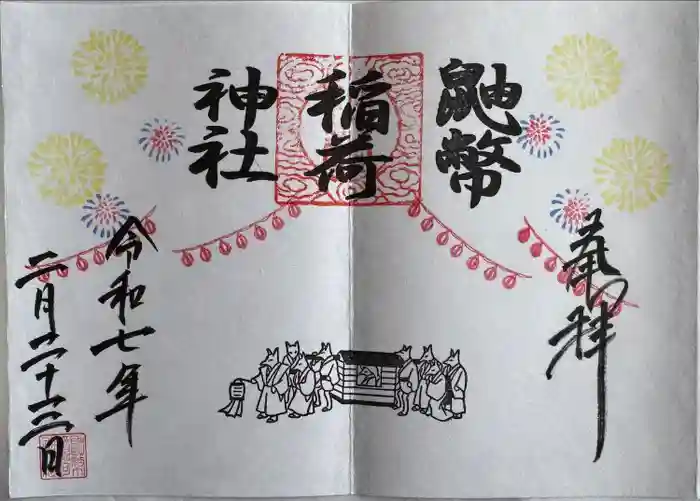 奉拝
鼬幣
稲荷
神社
令和七年
二月二十三日